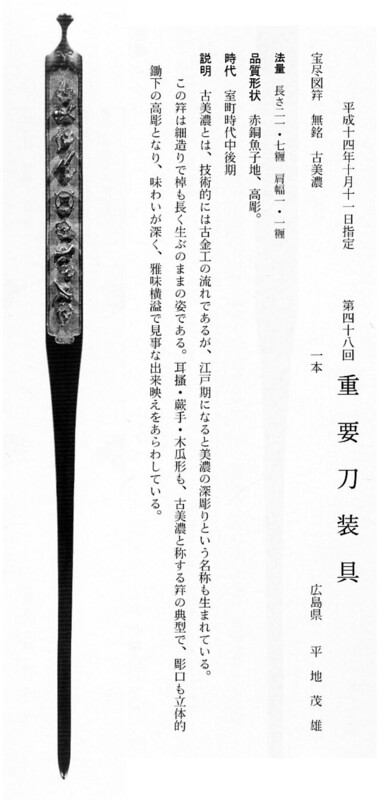 平成十四年十月十一日指定　第四十八回　重要刀装具
宝尽図笄　無銘　古美濃　一本　広島県　平地茂雄
法量　長さ二一・七糎　肩幅一・一糎
品質形状　赤銅魚子地、高彫。
時代　室町時代中後期
説明　古美濃とは、技術的には古金工の流れであるが、江戸期になると美濃の深彫りという名称も生まれている。
この笄は細造りで棹も長く生ぶのままの姿である。耳搔・蕨手・木瓜形も、古美濃と称する笄の典型で、彫口も立体的
鋤下の高彫となり、味わいが深く、雅味横溢で見事な出来映えをあらわしている。